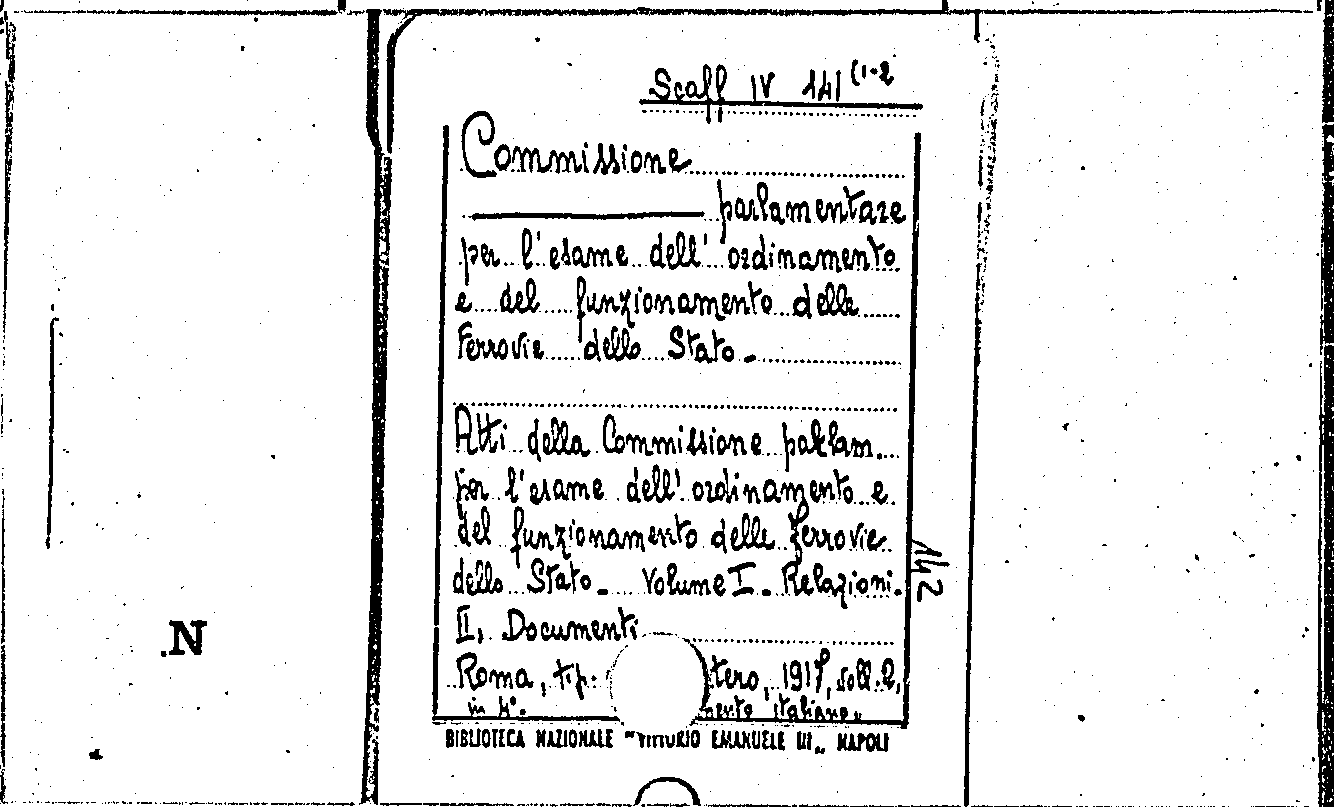 Scaff IV 141 (1-2
Commissione
parlamentare
per l'esame dell'ordinamento
e del funzionamento delle
Ferrovie dello Stato -
Atti della Commissione parlam.
per l'esame dell'ordinamento e
del funzionamento delle ferrovie
dello Stato - Volume I - Relazioni.
II, Documenti
Roma, tip. tero, 1917, voll. 2,
in 4°. mento italiano"
142
BIBLIOTECA NAZIONALE "VITTORIO EMANUELE III" NAPOLI
N.